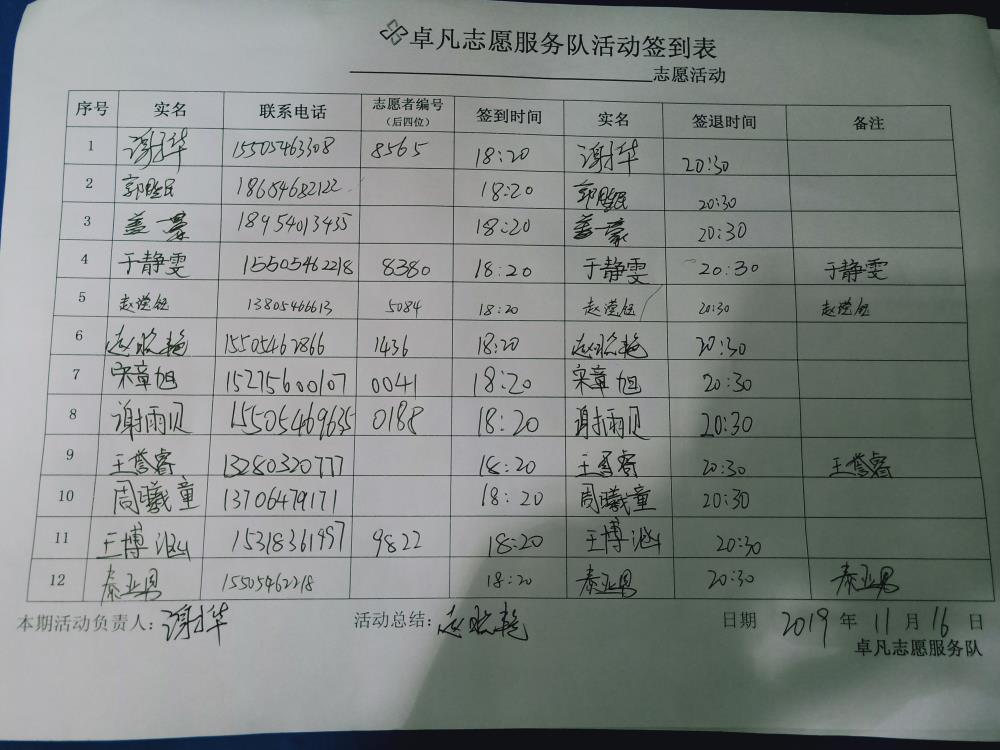 卓凡志愿服务队活动签到表
志愿活动
序号 实名 联系电话 志愿者编号（后四位） 签到时间 实名 签退时间 备注
1 谢才华 15505463308 8565 18:20 谢才华 20:30
2 18684682122 18:20 20:30
3 盖一蒙 18954013435 18:20 盖一蒙 20:30
4 于静雯 15505462218 8380 18:20 于静雯 20:30 于静雯
5 13805466613 5084 18:20 20:30
6 15505462866 1436 18:20 20:30
7 宋章旭 15275600107 0041 18:20 宋章旭 20:30
8 谢雨贝 15505469635 0188 18:20 谢雨贝 20:30
9 王誉睿 13280320777 18:20 王誉睿 20:30 王誉睿
10 周曦童 13706479171 18:20 周曦童 20:30
11 王博涵 15318361997 9822 18:20 王博涵 20:30
12 秦亚男 15505462218 18:20 秦亚男 20:30 秦亚男
本期活动负责人：谢才华 活动总结： 日期 2019 年 11 月 16 日
卓凡志愿服务队